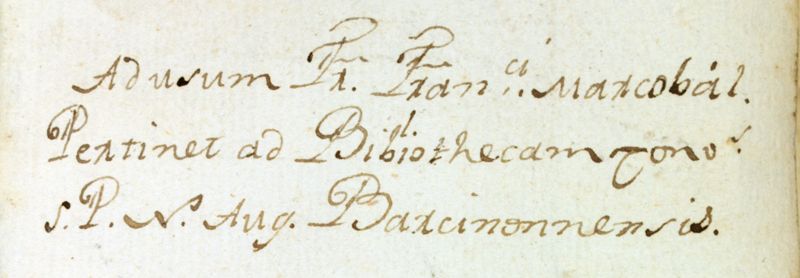 Ad usum Fr. Franci. Marcobál.
Pertinet ad Bibliothecam Convs.
s. P. Ns. Aug. Barcinonnensis.